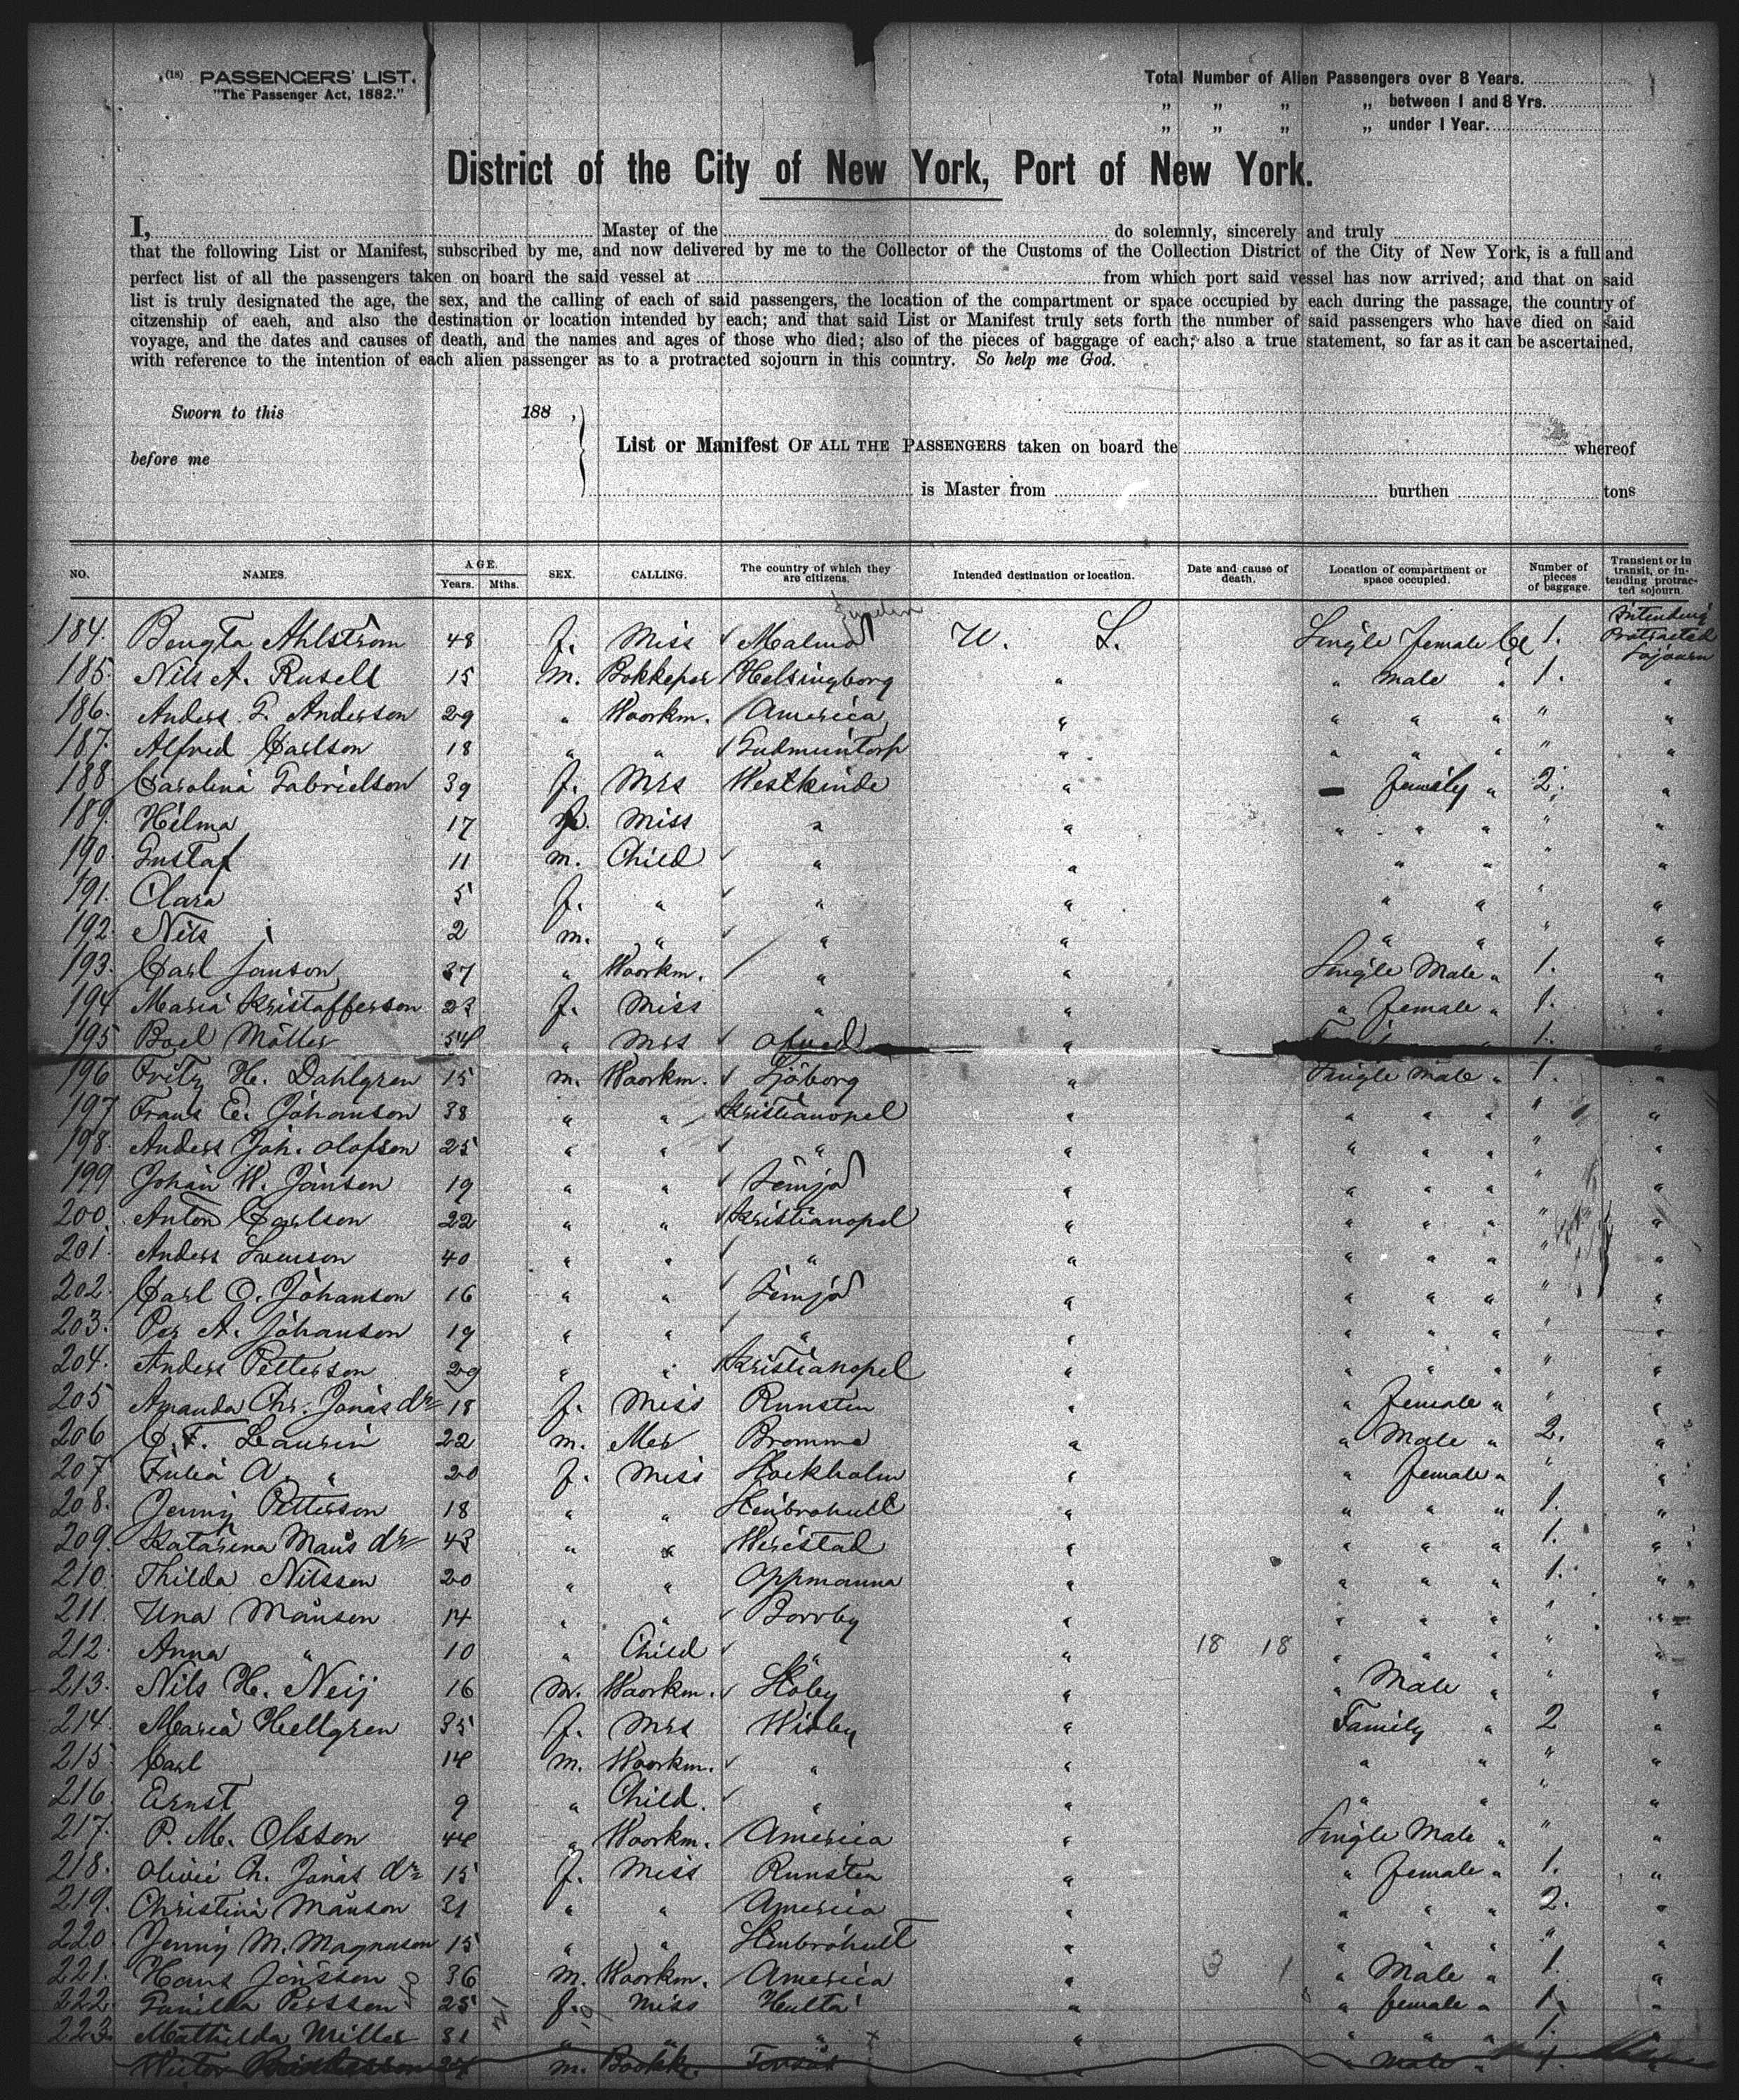 (18) PASSENGERS' LIST.
"The Passenger Act, 1882."
Total Number of Alien Passengers over 8 Years.
„ „ „ „ between 1 and 8 Yrs.
„ „ „ „ under 1 Year.
District of the City of New York, Port of New York.
I, Master of the do solemnly, sincerely and truly
that the following List or Manifest, subscribed by me, and now delivered by me to the Collector of the Customs of the Collection District of the City of New York, is a full and
perfect list of all the passengers taken on board the said vessel at from which port said vessel has now arrived; and that on said
list is truly designated the age, the sex, and the calling of each of said passengers, the location of the compartment or space occupied by each during the passage, the country of
citzenship of eaeh, and also the destination or location intended by each; and that said List or Manifest truly sets forth the number of said passengers who have died on said
voyage, and the dates and causes of death, and the names and ages of those who died; also of the pieces of baggage of each; also a true statement, so far as it can be ascertained,
with reference to the intention of each alien passenger as to a protracted sojourn in this country. So help me God.
Sworn to this 188 ,
before me
List or Manifest OF ALL THE PASSENGERS taken on board the whereof
is Master from burthen tons
NO. NAMES. AGE. Years. Mths. SEX. CALLING. The country of which they are citizens. Intended destination or location. Date and cause of death. Location of compartment or space occupied. Number of pieces of baggage. Transient or in transit, or intending protracted sojourn.
184. Bengta Ahlström 48 f. Miss Malmö U. S. Single female 1. Intending Protracted Sojourn
185. Nils A. Rusell 15 m. Bokkeper Helsingborg " " male " 1. "
186. Anders G. Anderson 29 " Woorkm. America " " " " " "
187. Alfred Carlson 18 " " Gudmuntorp " " " " " "
188. Carolina Gabrielson 39 f. Mrs Westkinde " family " 2. "
189. Hilma 17 f. Miss " " " " " " "
190. Gustaf 11 m. Child " " " " " "
191. Clara 5 f. " " " " " " "
192. Nils 2 m. " " " " " " "
193. Carl Janson 37 " Woorkm. " " Single Male " 1. "
194 Maria Kristofferson 23 f. Miss " " " female " 1. "
195 Boel Möller 54 " Mrs " 1. "
196 Fritz H. Dahlgren 15 m. Woorkm. Sjöborg " Single male " 1. "
197 Frans E. Johanson 38 " " Kristianopel " " " " " "
198. Anders Joh. Olofson 25 " " " " " " " " "
199 Johan W. Janson 19 " " Jemjö " " " " " "
200. Anton Carlson 22 " " Kristianopel " " " " " "
201. Anders Svenson 40 " " " " " " " " "
202. Carl O. Johanson 16 " " Jemjö " " " " " "
203. Per A. Johanson 19 " " " " " " " " "
204. Anders Petterson 29 " " Kristianopel " " " " " "
205 Amanda Chr. Jonas dr 18 f. Miss Runsten " " female " " "
206 C. F. Laurin 22 m. Mer Bromma " " Male " 2. "
207 Julia A. " 20 f. Miss Stockholm " " female " " "
208. Jenny Petterson 18 " " Stenbrohult " " " " 1. "
209. Katarina Måns dr 43 " " Wirestad " " " " 1. "
210. Thilda Nilsson 20 " " Oppmanna " " " " 1. "
211. Una Månson 14 " " Borrby " " " " " "
212. Anna " 10 " Child " " 18 18 " " " " "
213. Nils H. Neij 16 m. Woorkm. Höby " " Male " " "
214. Maria Hellgren 35 f. Mrs Wisby " Family " 2 "
215 Carl 14 m. Woorkm. " " " " " "
216. Ernst 9 " Child. " " " " " "
217. P. M. Olsson 44 " Woorkm. America " Single Male " " "
218. Olivie Ch. Jonas dr 15 f. Miss Runsten " " female " 1. "
219. Christina Månson 31 " " America " " " " 2. "
220. Jenny M. Magnuson 15 " " Stenbrohult " " " " " "
221. Hans Jönsson 36 m. Woorkm. America " 3 1 " Male " 1. "
222. Gunilla Persson 25 f. Miss Hulta " " female " 1. "
223. Mathilda Miller 31 " " " " " " " 1. "
m. Bookk. Torsås " male " 1. "